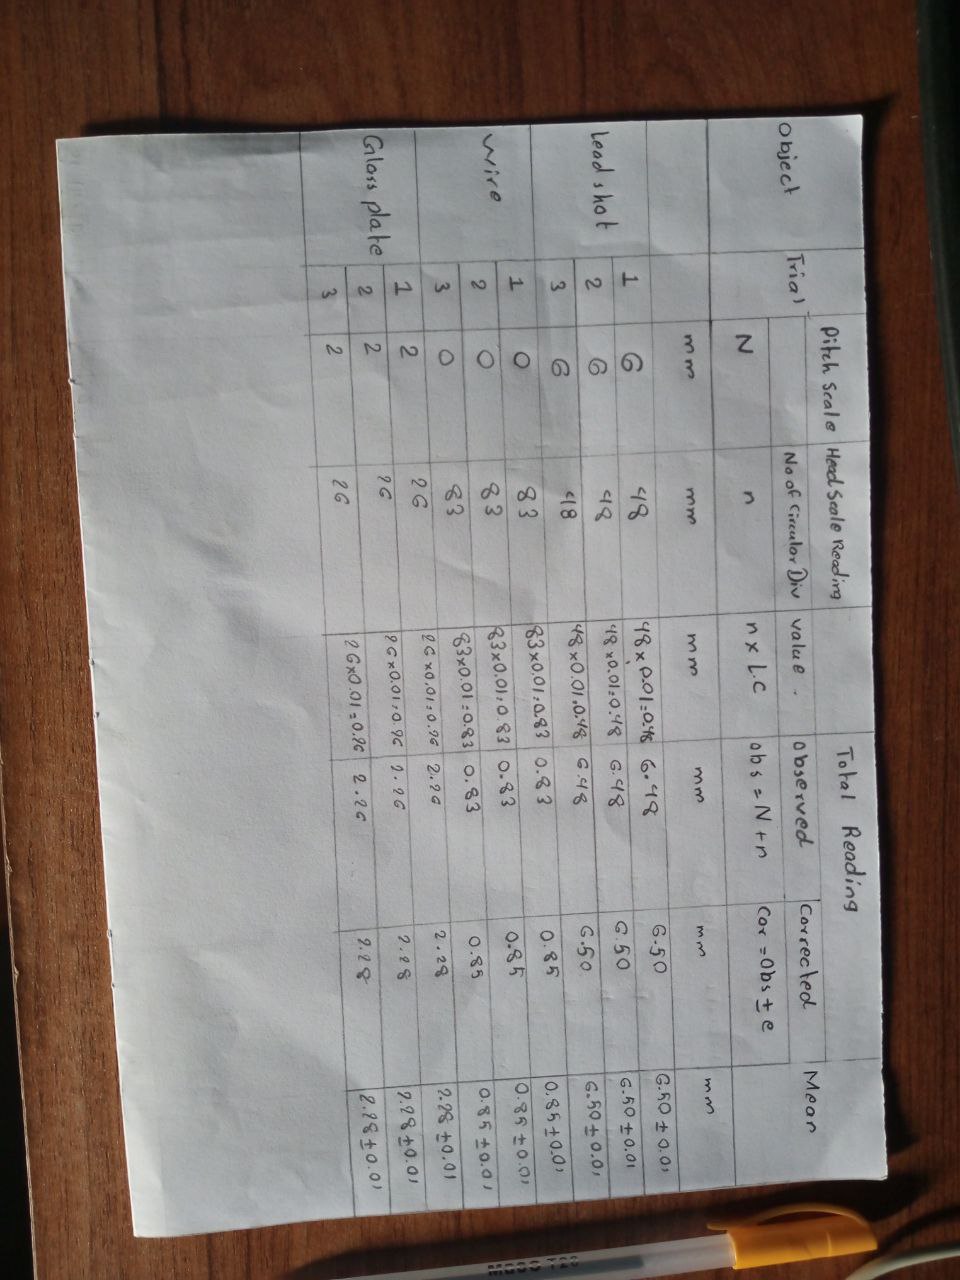 Object Trial Pitch Scale Head Scale Reading Total Reading Mean
No of Circular Div value . Observed Corrected
N n n x L.C obs = N + n Cor = Obs ± e
mm mm mm mm mm mm
Lead shot 1 6 48 48 x 0.01 = 0.48 6.48 6.50 6.50 ± 0.01
2 6 48 48 x 0.01 = 0.48 6.48 6.50 6.50 ± 0.01
3 6 48 48 x 0.01 = 0.48 6.48 6.50 6.50 ± 0.01
Wire 1 0 83 83x0.01 = 0.83 0.83 0.85 0.85 ± 0.01
2 0 83 83x0.01 = 0.83 0.83 0.85 0.85 ± 0.01
3 0 83 83x0.01 = 0.83 0.83 0.85 0.85 ± 0.01
Glass plate 1 2 26 26x0.01 = 0.26 2.26 2.28 2.28 ± 0.01
2 2 26 26x0.01 = 0.26 2.26 2.28 2.28 ± 0.01
3 2 26 26x0.01 = 0.26 2.26 2.28 2.28 ± 0.01